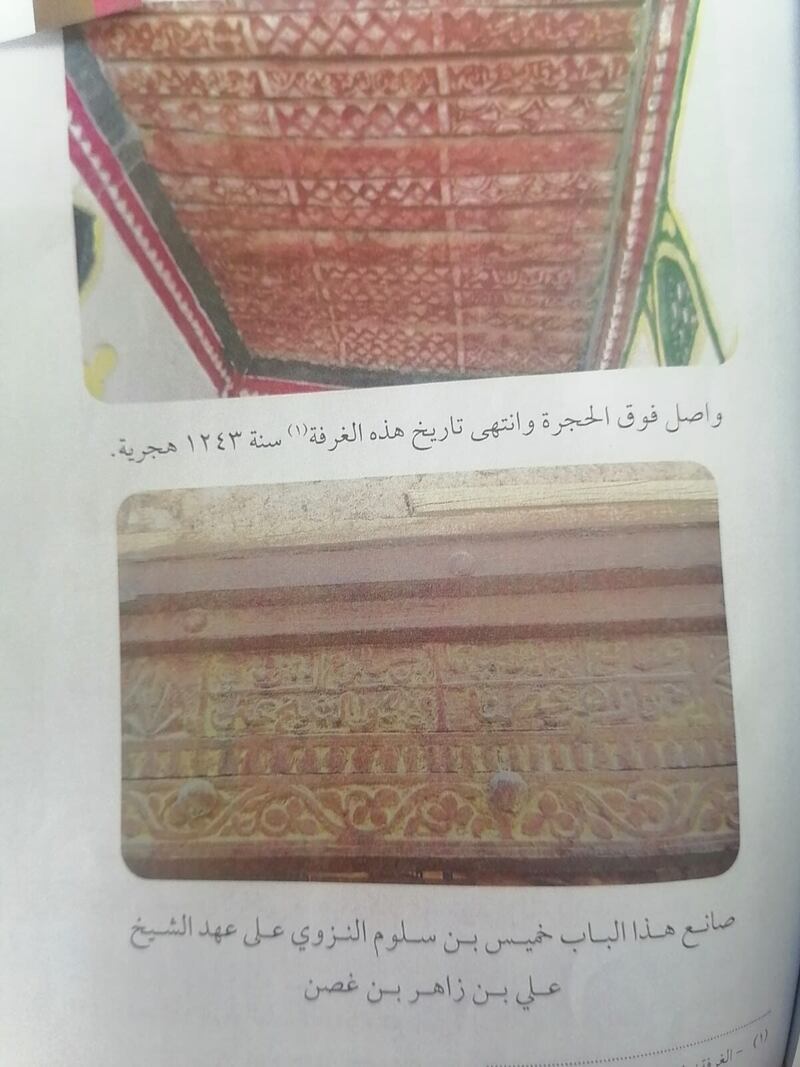 واصل فوق الحجرة وانتهى تاريخ هذه الغرفة(١) سنة ١٢٤٣ هجرية.
صانع هذا الباب خميس بن سلوم النزوي على عهد الشيخ
علي بن زاهر بن غصن
(١) - الغرفة